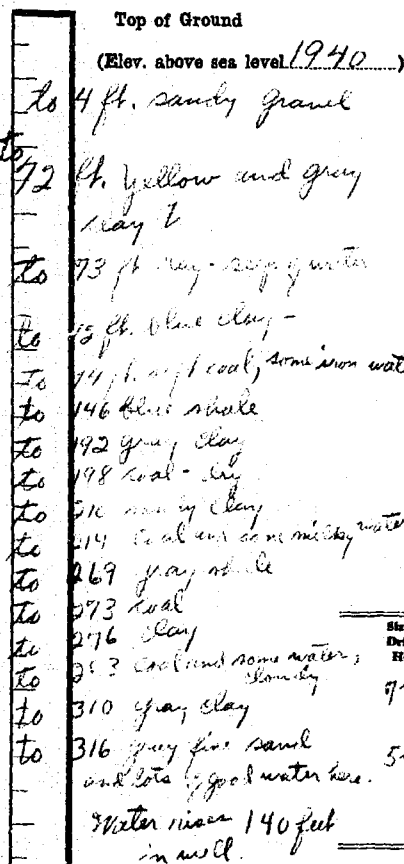 Top of Ground
(Elev. above sea level 1940)
to 4 ft. sandy gravel
to 72 ft. yellow and gray
clay
to 73 ft water
to ft. blue clay -
To coal, some iron wat
to 146 blue shale
to 192 gray clay
to 198 coal - dry
to clay
to 214 coal some milky water
to 269 gray shale
to 273 coal
to 276 clay
to coal and some water,
cloudy
to 310 gray clay
to 316 grey fine sand
and lots of good water here.
Water rises 140 feet
in well.